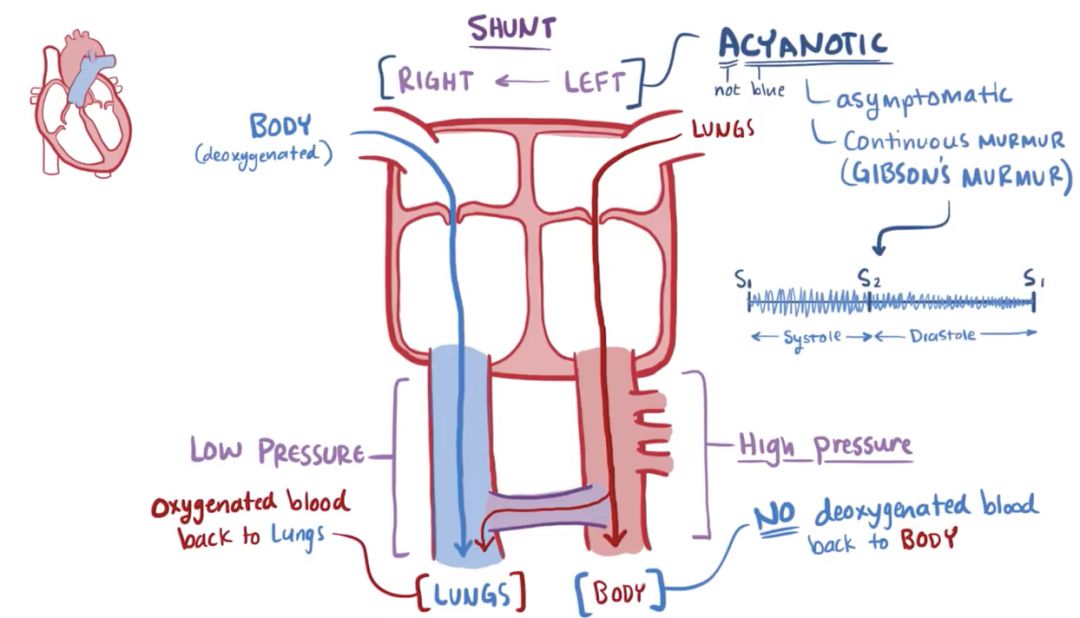 SHUNT
[RIGHT ← LEFT]
ACYANOTIC
not blue
asymptomatic
Continuous MURMUR
(GIBSON'S MURMUR)
BODY
(deoxygenated)
LUNGS
S1 S2 S1
← Systole → ← Diastole →
LOW PRESSURE
High pressure
Oxygenated blood
back to Lungs
NO deoxygenated blood
back to BODY
[LUNGS] [BODY]